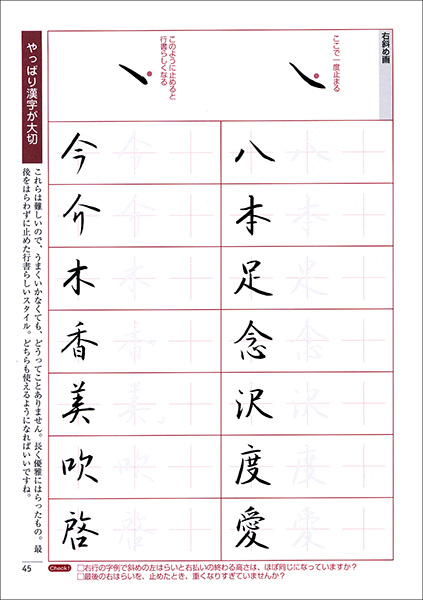 右斜め画
ここで一度止まる
このように止めると
行書らしくなる
八
本
足
念
沢
度
愛
今
介
木
香
美
吹
啓
やっぱり漢字が大切
これらは難しいので、うまくいかなくても、どうってことありません。長く優雅にはらったもの。最
後をはらわずに止めた行書らしいスタイル。どちらも使えるようになればいいですね。
Check! □右行の字例で斜めの左はらいと右払いの終わる高さは、ほぼ同じになっていますか?
□最後の右はらいを、止めたとき、重くなりすぎていませんか?
45